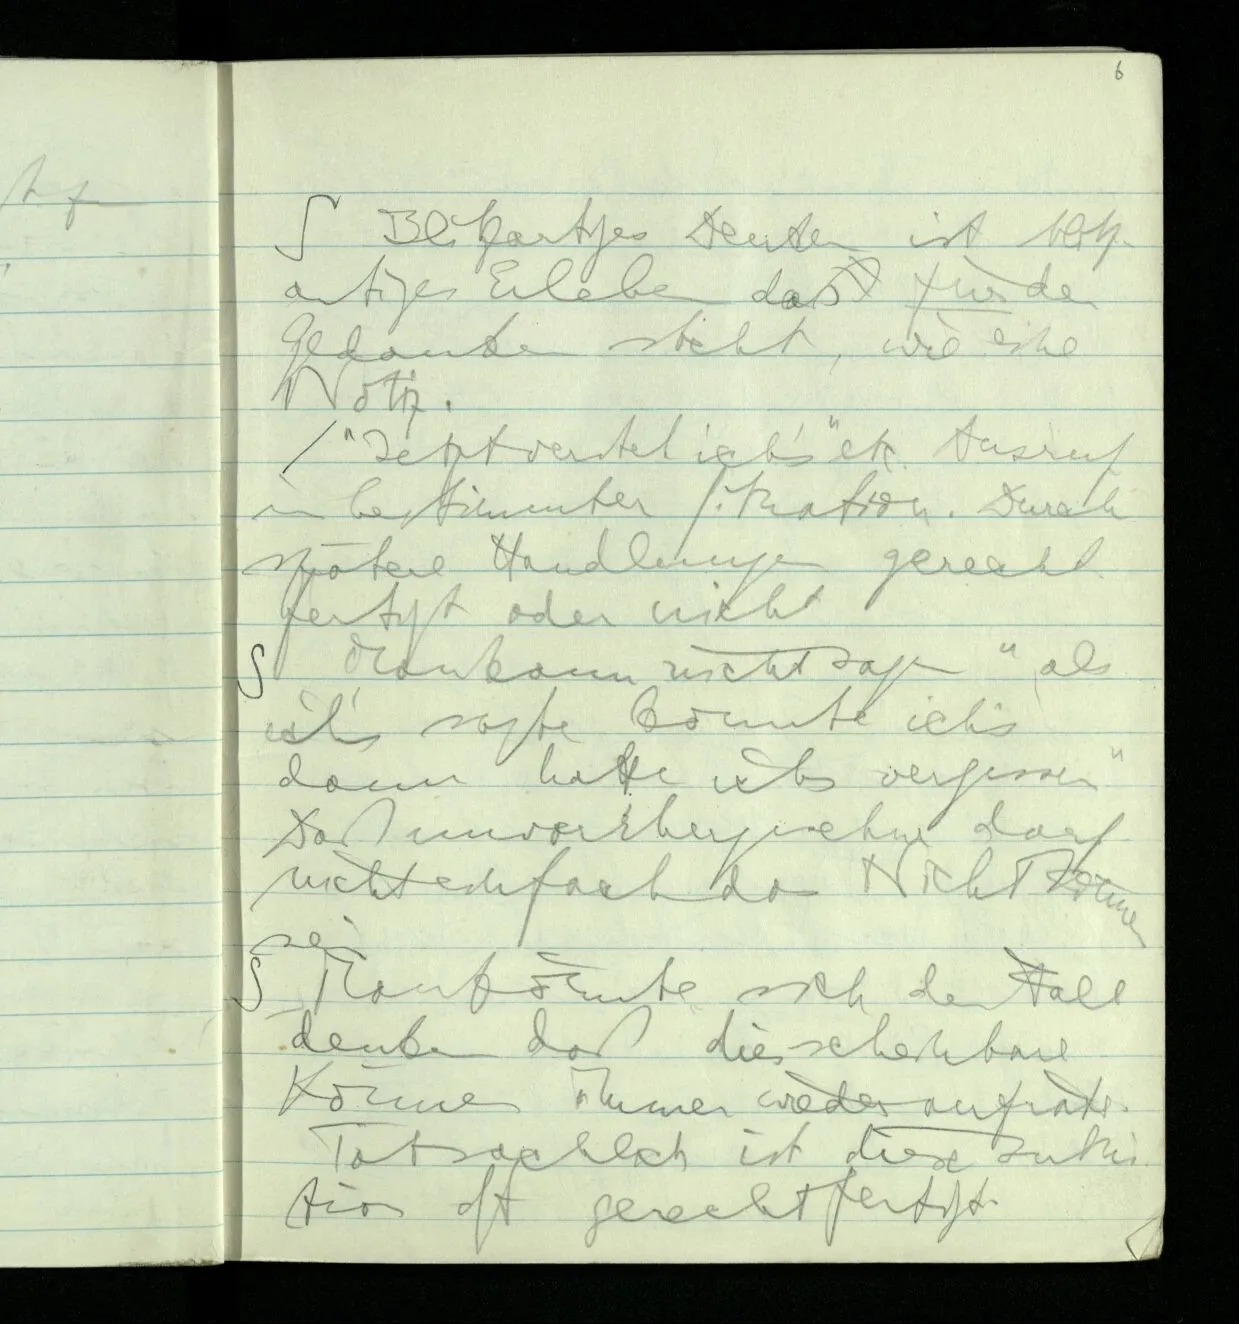 6
∫ Blitzartiges Denken ist blitz-
artiges Erleben das für den
Gedanken steht, wie eine
Notiz.
/ "Jetzt versteh ich's" etc. Ausruf
in bestimmter Situation. Durch
spätere Handlungen gerecht
fertigt oder nicht
∫ Man kann nicht sagen "als
ich's sagte konnte ich's
dann hatte ich's vergessen"
Das
nicht einfach das Nicht Können
sein
∫ Man könnte sich den Fall
denken daß dies scheinbare
Können immer wieder aufträte.
Tatsächlich ist diese Intui
tion oft gerechtfertigt.